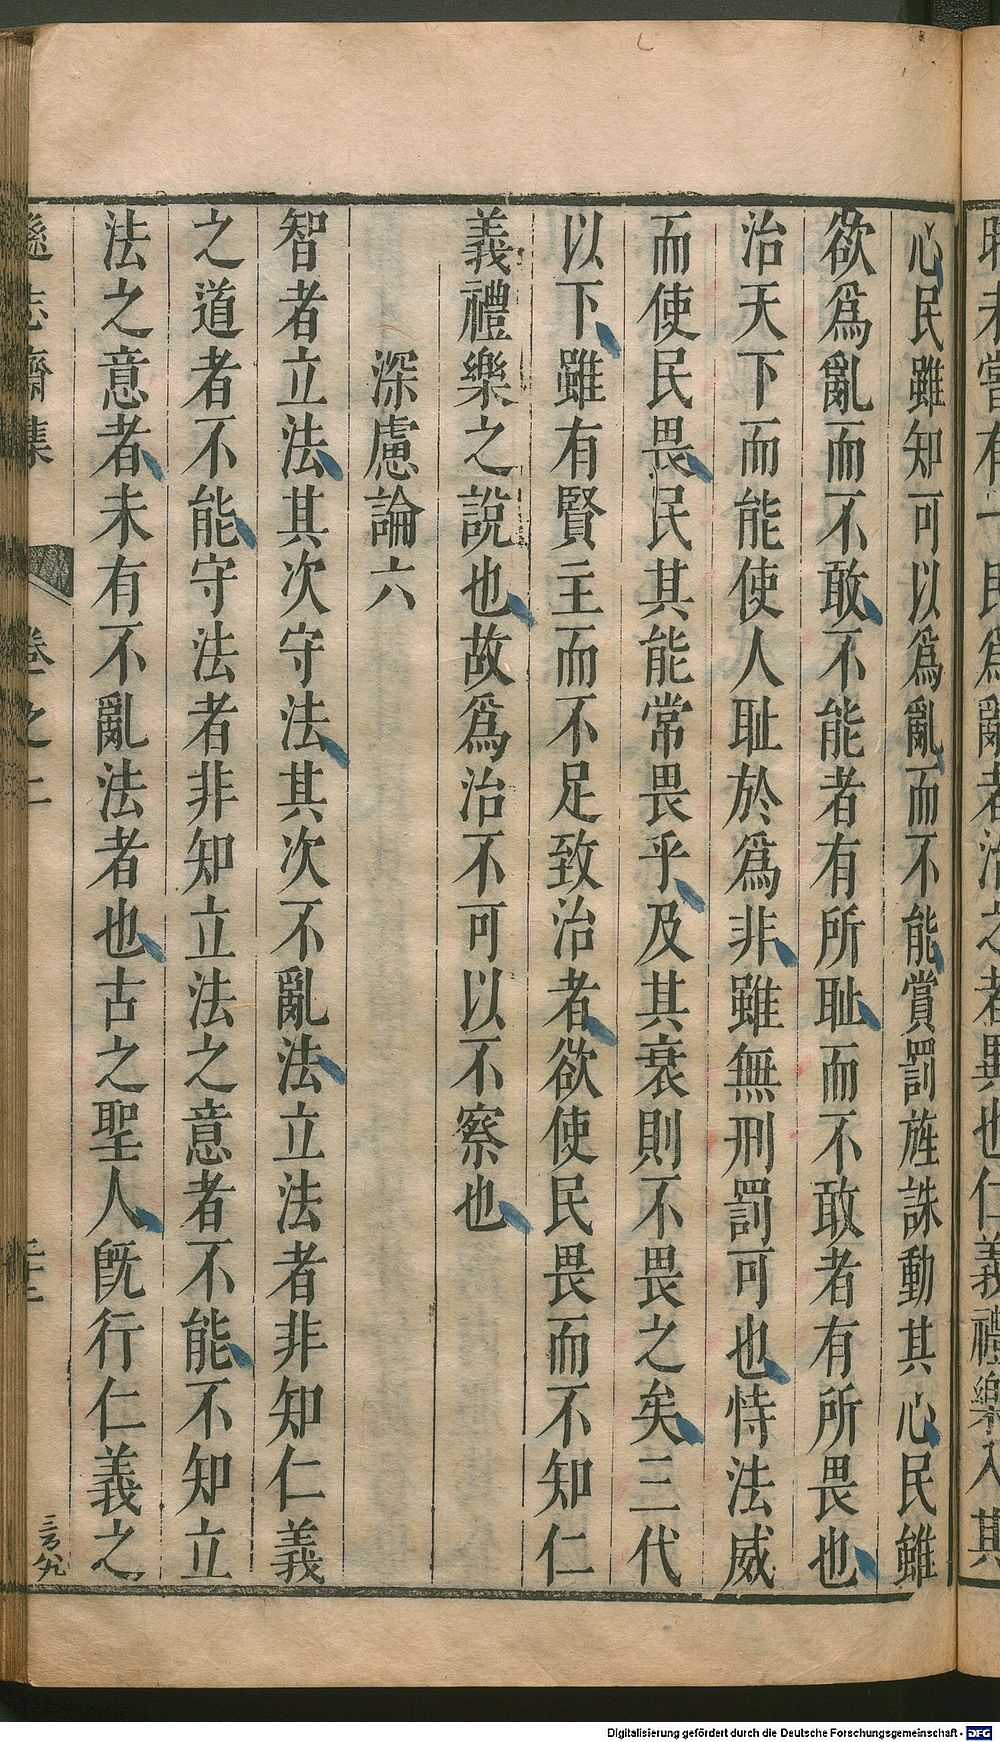 心民雖知可以爲亂而不能賞罰旌誅動其心民雖
欲爲亂而不敢不能者有所耻而不敢者有所畏也
治天下而能使人耻於爲非雖無刑罰可也恃法威
而使民畏民其能常畏乎及其衰則不畏之矣三代
以下雖有賢主而不足致治者欲使民畏而不知仁
義禮樂之說也故爲治不可以不察也
深慮論六
智者立法其次守法其次不亂法立法者非知仁義
之道者不能守法者非知立法之意者不能不知立
法之意者未有不亂法者也古之聖人旣行仁義之
遜志齋集 卷之二
Digitalisierung gefördert durch die Deutsche Forschungsgemeinschaft - DFG